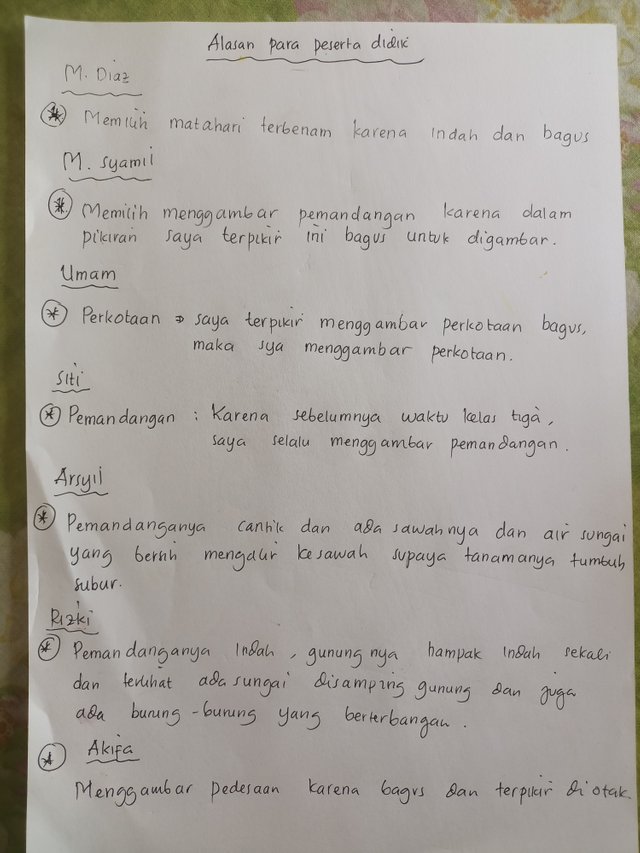 Alasan para peserta didik
M. Diaz
* Memilih matahari terbenam karena indah dan bagus
M. Syamil
* Memilih menggambar pemandangan karena dalam
pikiran saya terpikir ini bagus untuk digambar.
Umam
* Perkotaan ⇒ saya terpikir menggambar perkotaan bagus,
maka sya menggambar perkotaan.
Siti
* Pemandangan : Karena sebelumnya waktu kelas tiga,
saya selalu menggambar pemandangan.
Arsyil
* Pemandanganya cantik dan ada sawahnya dan air sungai
yang bersih mengalir kesawah supaya tanamanya tumbuh
subur.
Rizki
* Pemandanganya indah, gunungnya nampak indah sekali
dan terlihat ada sungai disamping gunung dan juga
ada burung-burung yang berterbangan.
* Akifa
Menggambar pedesaan karena bagus dan terpikir di otak